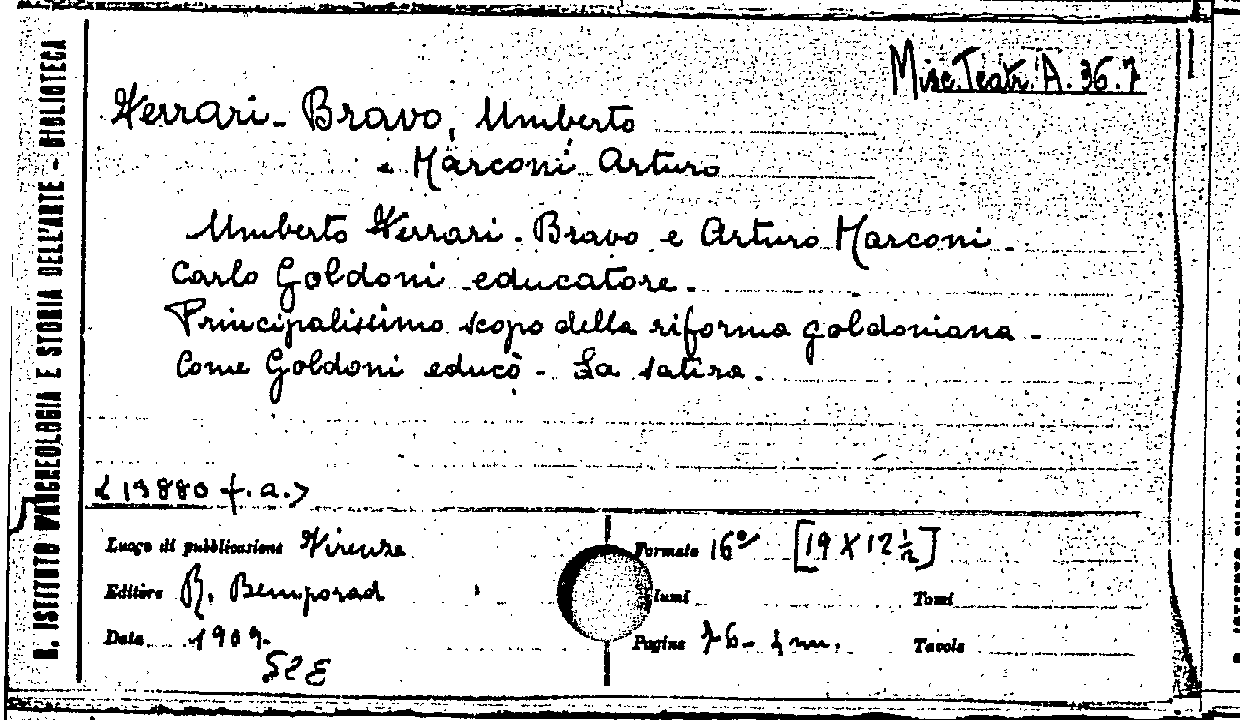 Misc. Teatr. A. 36.7
Ferrari-Bravo, Umberto
e Marconi Arturo
Umberto Ferrari-Bravo e Arturo Marconi.
Carlo Goldoni educatore.
Principalissimo scopo della riforma goldoniana -
Come Goldoni educò - La satira.
<13880 f.a.>
Luogo di pubblicazione Firenze
Editore R. Bemporad
Data 1909.
Formato 16° [19 X 12 ½]
Tomi
Pagine 76-
Tavole
R. ISTITUTO D'ARCHEOLOGIA E STORIA DELL'ARTE - BIBLIOTECA